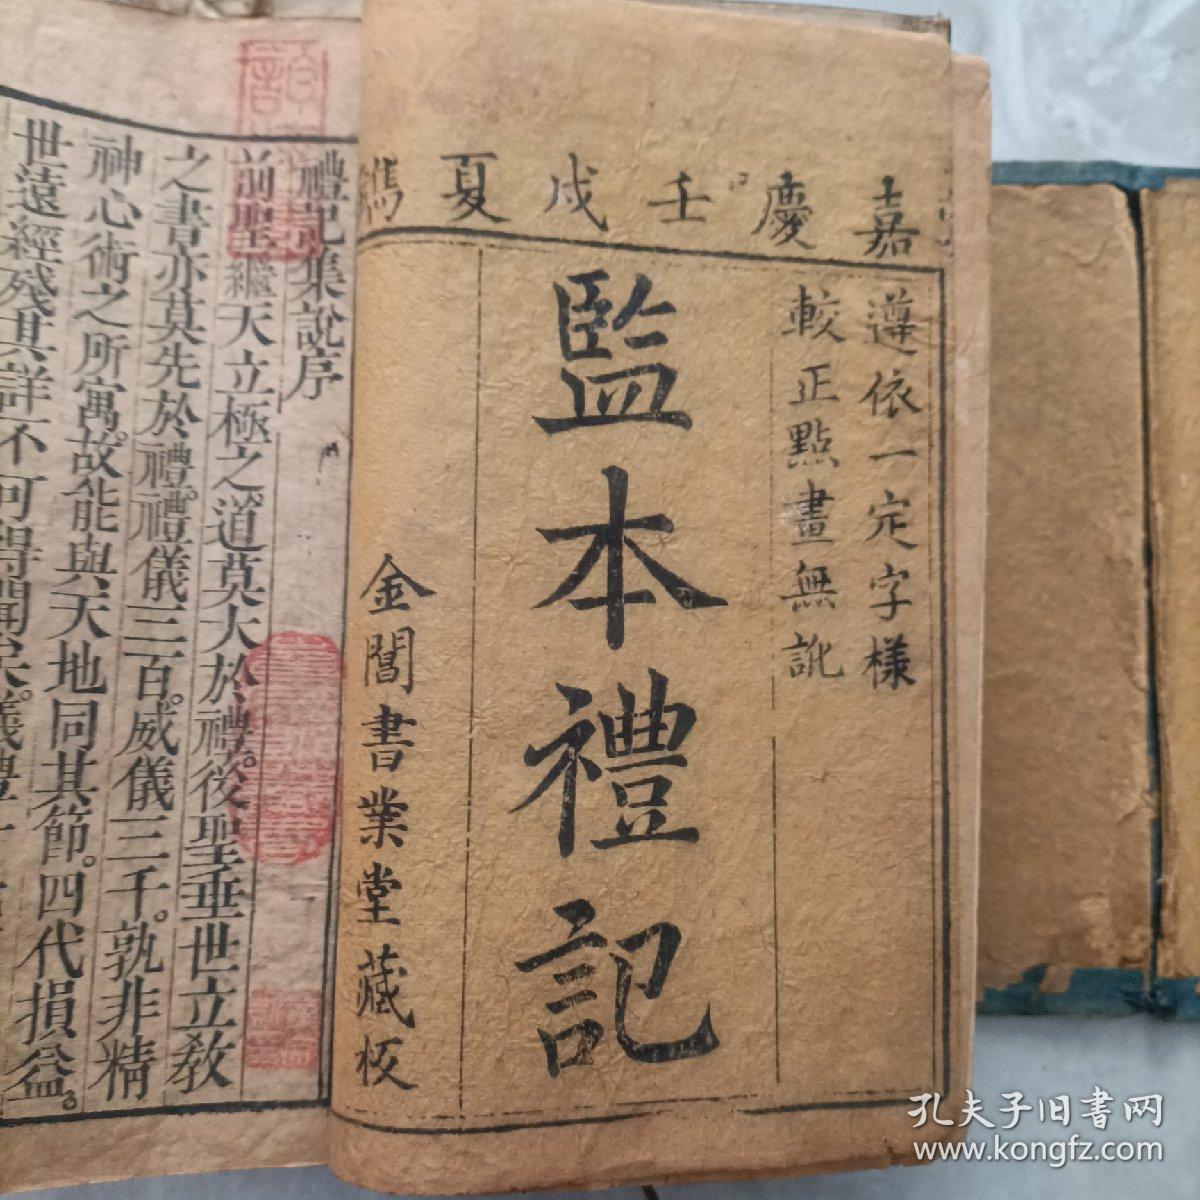 嘉慶壬戌夏鐫
遵依一定字樣
較正點畫無訛
監本禮記
金閶書業堂藏板
禮記集說序
前聖繼天立極之道莫大於禮。後聖垂世立教
之書亦莫先於禮。禮儀三百。威儀三千。孰非精
神心術之所寓。故能與天地同其節。四代損益。
世遠經殘其詳不可得聞矣。儀禮
孔夫子旧书网
www.kongfz.com